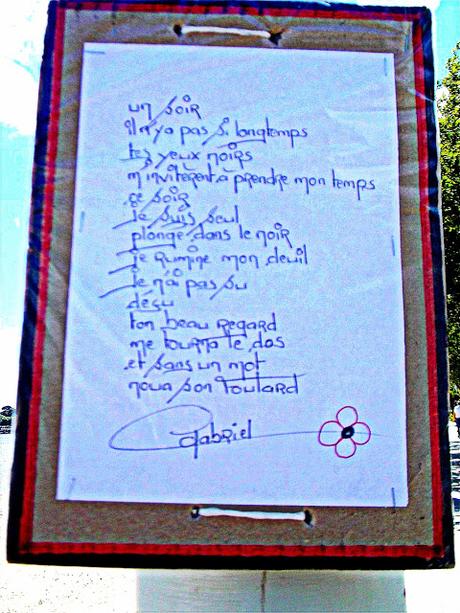 un soir
il n'y a pas si longtemps
tes yeux noirs
m'invitèrent à prendre mon temps
ce soir
je suis seul
plongé dans le noir
je rumine mon deuil
je n'ai pas su
déçu
ton beau regard
me tourna le dos
et sans un mot
noua son foulard
Gabriel